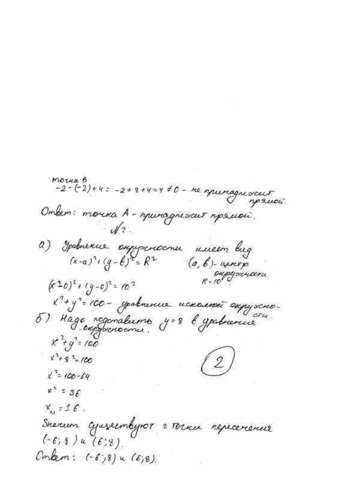 точка В
-2-(-2)+4 = -2+2+4=4≠0 - не принадлежит
прямой
Ответ: точка А - принадлежит прямой.
а) Уравнение окружности имеет вид
(x-a)²+(y-b)²=R² (a,b)-центр
окружности
R=10
(x-0)²+(y-0)²=10²
x²+y²=100 - уравнение искомой окружно-
сти.
б) Надо подставить y=8 в уравнения
окружности.
x²+y²=100
x²+8²=100
x²=100-64
x²=36
②
Значит существуют точки пересечения
(-6;8) и (6;8).
Ответ: (-6;8) и (6;8).